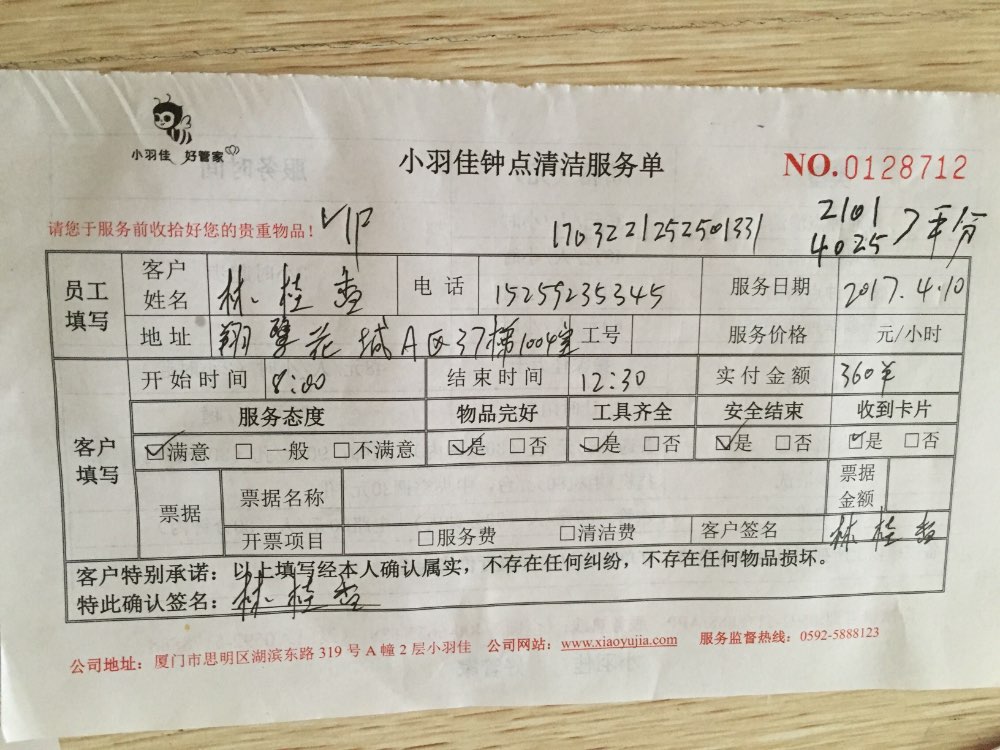 小羽佳 好管家
小羽佳钟点清洁服务单
NO.0128712
请您于服务前收拾好您的贵重物品！
VIP
1703221252501331
2101
4025 平分
员工填写 客户姓名 林桂 电话 15259235345 服务日期 2017.4.10
地址 翔鹭花城A区37梯1004室 工号 服务价格 元/小时
客户填写 开始时间 8:00 结束时间 12:30 实付金额 360
服务态度 物品完好 工具齐全 安全结束 收到卡片
☑满意 □一般 □不满意 ☑是 □否 ☑是 □否 ☑是 □否 ☑是 □否
票据 票据名称 票据金额
开票项目 □服务费 □清洁费 客户签名 林桂
客户特别承诺：以上填写经本人确认属实，不存在任何纠纷，不存在任何物品损坏。
特此确认签名：林桂
公司地址：厦门市思明区湖滨东路319号A幢2层小羽佳 公司网站：www.xiaoyujia.com 服务监督热线：0592-5888123